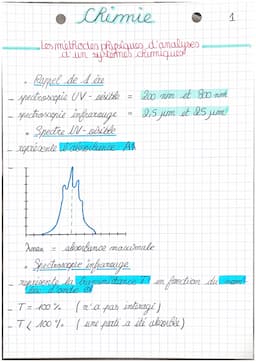 Chimie
1
Les méthodes physiques d'analyses
d'un systèmes chimiques
• Rappel de 1 ère
- spectroscopie UV-visible = 200 nm et 800 nm
- spectroscopie infrarouge = 2,5 µm et 25 µm
• Spectre UV-visible
représente l'absorbance A
λmax = absorbance maximale
• Spectroscopie infrarouge
- représente la transmittance T en fonction du nom
bre d'onde σ
- T = 100 % ( n'a pas interagi )
- T < 100 % ( une partie a été absorbée )